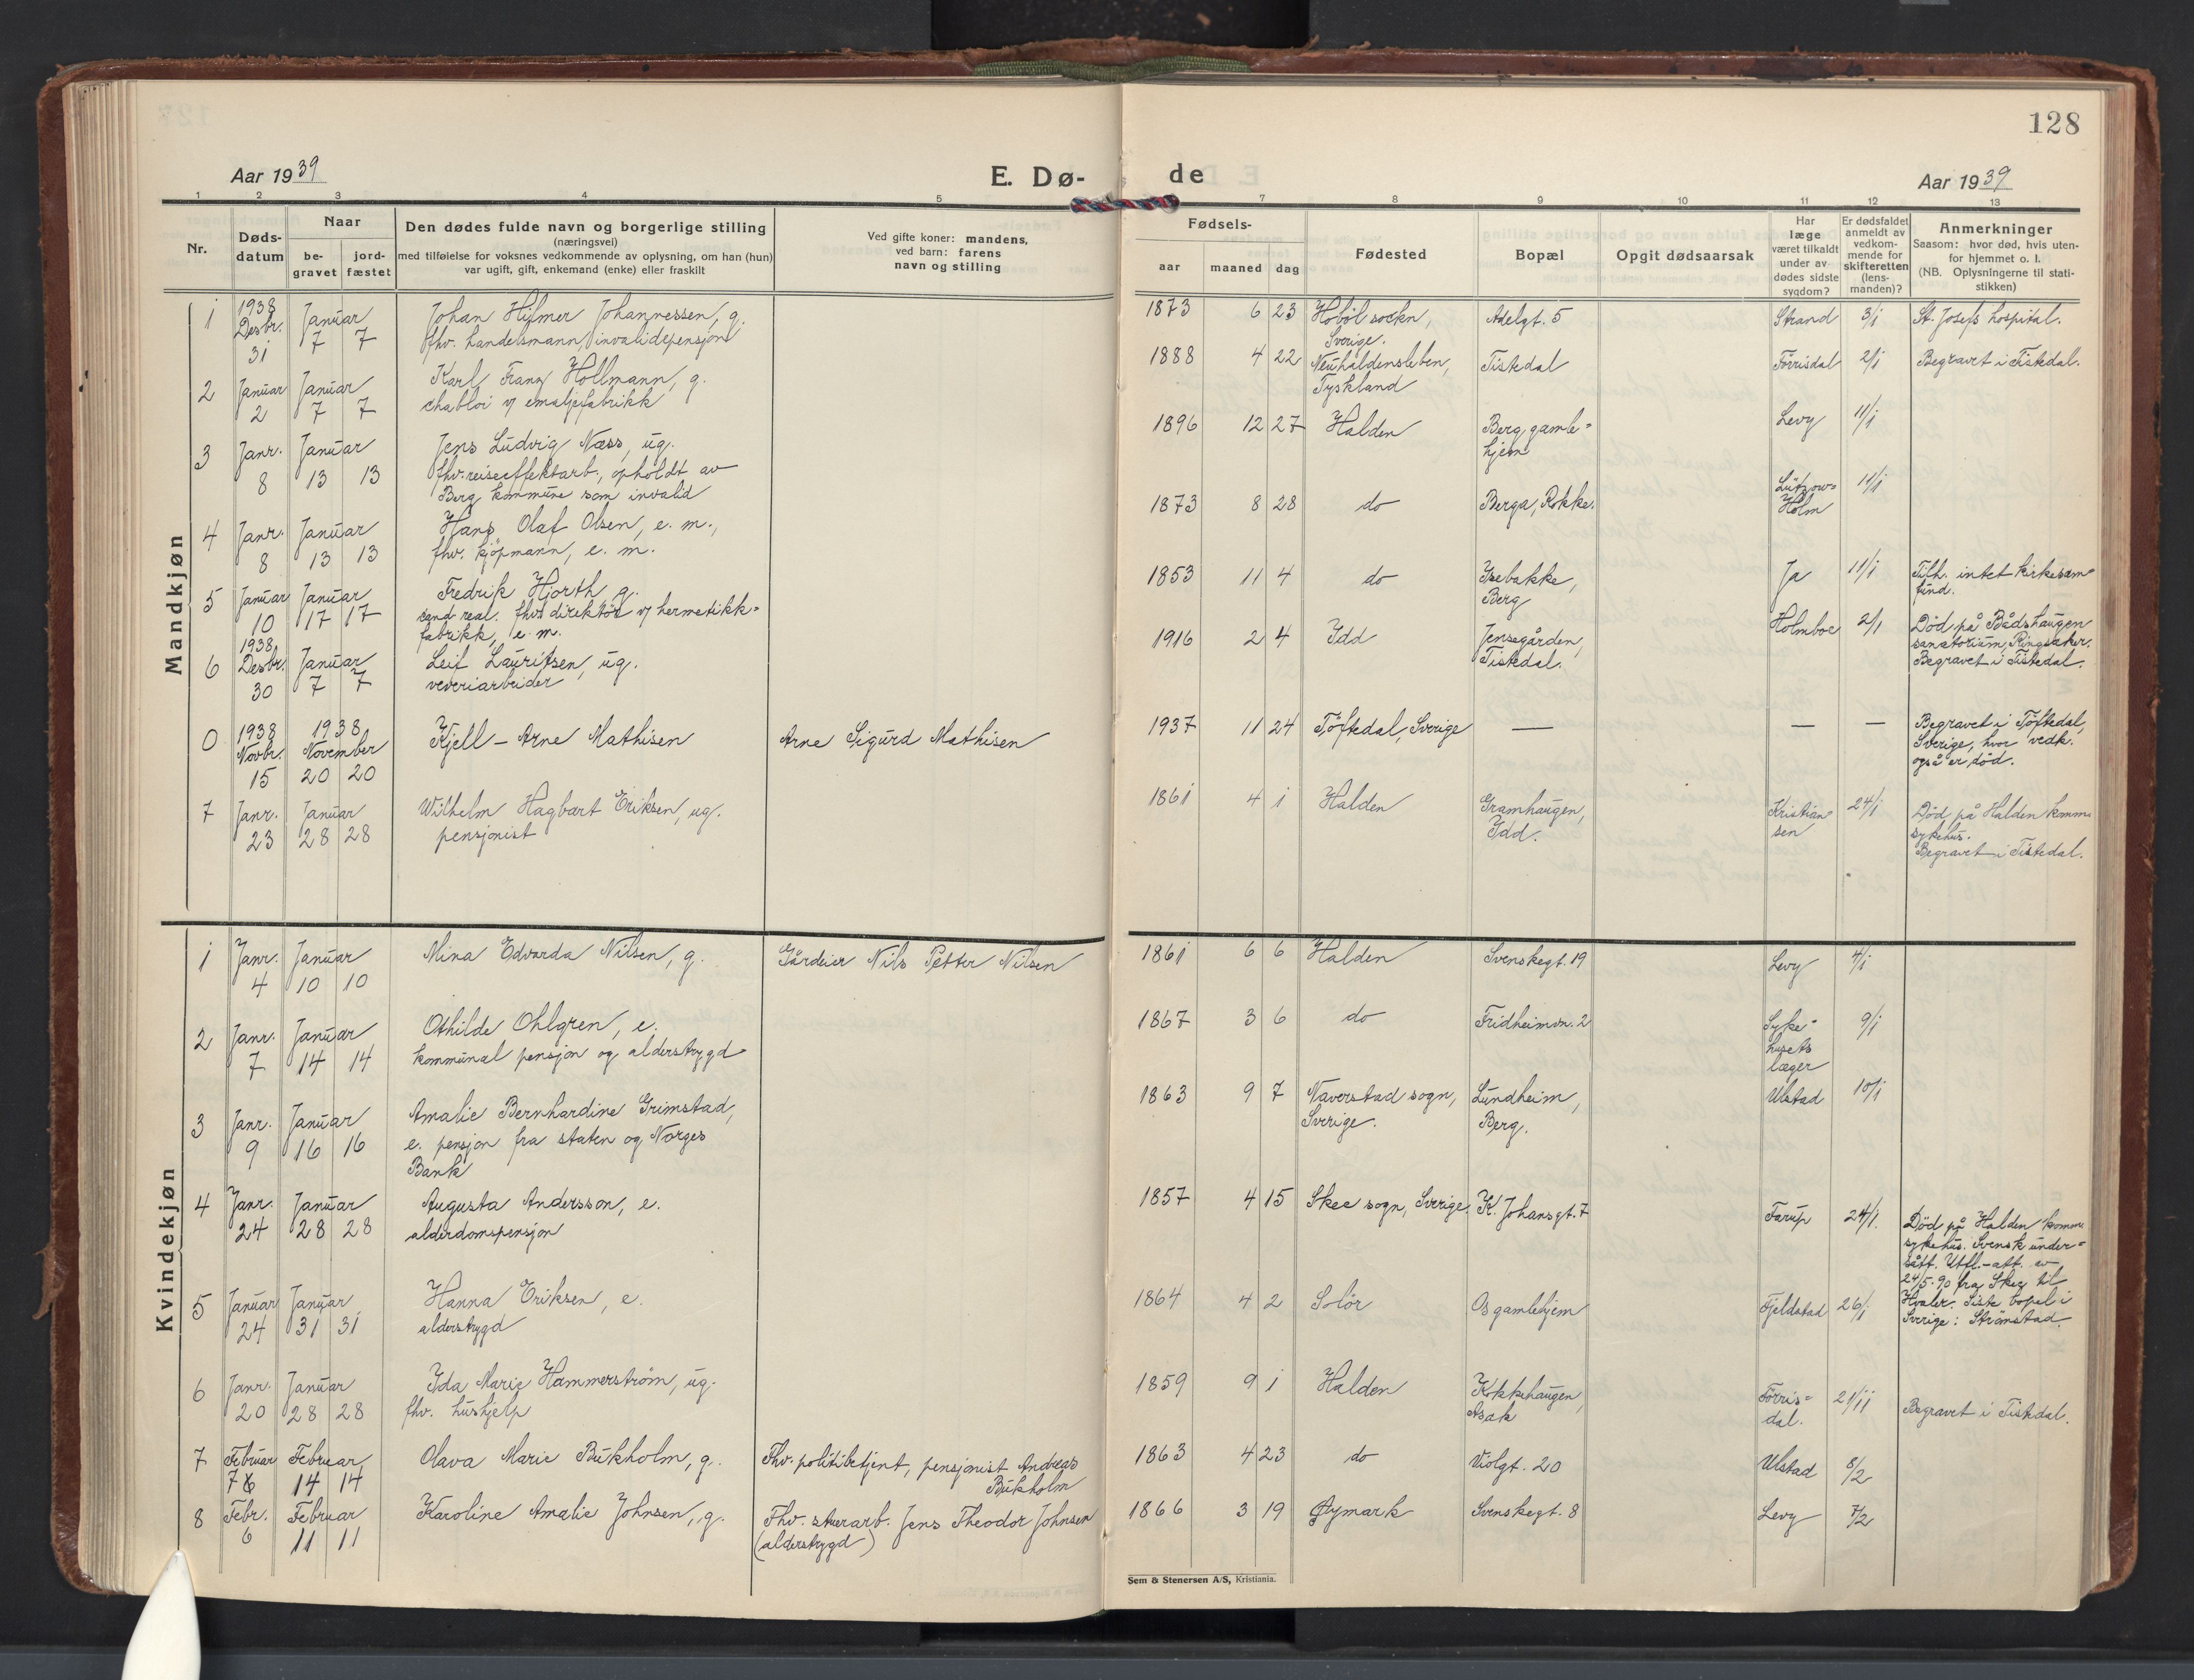 128
Aar 1939
E. Dø-
de
Aar 1939
1 2 3 4 5 7 8 9 10 11 12 13
Nr.
Døds-
datum
Naar
be-
gravet
jord-
fæstet
Den dødes fulde navn og borgerlige stilling
(næringsvei)
med tilføielse for voksnes vedkommende av oplysning, om han (hun)
var ugift, gift, enkemand (enke) eller fraskilt
Ved gifte koner: mandens,
ved barn: farens
navn og stilling
Fødsels-
aar maaned dag
Fødested
Bopæl
Opgit dødsaarsak
Har
læge
været tilkaldt
under av-
dødes sidste
sygdom?
Er dødsfaldet
anmeldt av
vedkom-
mende for
skifteretten
(lens-
manden)?
Anmerkninger
Saasom: hvor død, hvis uten-
for hjemmet o. l.
(NB. Oplysningerne til stati-
stikken)
Mandkjøn
1 1938 Desbr. 31 Januar 7 7
Johan Hilmer Johannessen, g.
fhv. handelsmann, invalidepensjon
1873 6 23 Höböl sockn,
Sverige.
Adelgt. 5 Strand 3/1 St. Josefs hospital.
2 Januar 2 Januar 7 7
Karl Franz Hollmann, g.
chabloi v/ emaljefabrikk
1888 4 22 Neuhaldensleben,
Tyskland
Tistedal Förrisdal 2/1 Begravet i Tistedal.
3 Janr. 8 Januar 13 13
Jens Ludvig Næss, ug.
fhv. reiseeffektarb., opholdt av
Berg kommune som invalid
1896 12 27 Halden Berg gamle=
hjem
Levy 11/1
4 Janr. 8 Januar 13 13
Hans Olaf Olsen, e. m.,
fhv. kjöpmann, e. m.
1873 8 28 do Berga, Rokke. Lützow=
Holm
11/1
5 Januar 10 Januar 17 17
Fredrik Hjorth, g.
cand real. fhv. direktör v/ hermetikk=
fabrikk, e. m.
1853 11 4 do Isebakke,
Berg
Ja 11/1 Tilh. intet kirkesam=
fund.
6 1938 Desbr. 30 Januar 7 7
Leif Lauritsen, ug.
veveriarbeider
1916 2 4 Idd Jensegården,
Tistedal.
Holmboe 2/1 Död på Bådshaugen
sanatorium, Ringsaker.
Begravet i Tistedal.
0 1938 Novbr. 15 1938 November 20 20
Kjell-Arne Mathisen
Arne Sigurd Mathisen
1937 11 24 Töftedal, Sverige — — —
Begravet i Töftedal,
Sverige, hvor vedk.
også er död.
7 Janr. 23 Januar 28 28
Wilhelm Hagbart Eriksen, ug.
pensjonist
1861 4 1 Halden Gramhaugen,
Idd.
Kristian=
sen
24/1 Död på Halden komm.
sykehus.
Begravet i Tistedal.
Kvindekjøn
1 Janr. 4 Januar 10 10
Mina Edvarda Nilsen, g.
Gårdeier Nils Petter Nilsen
1861 6 6 Halden Svenskegt. 19 Levy 4/1
2 Janr. 7 Januar 14 14
Othilde Ohlgren, e.
kommunal pensjon og alderstrygd
1867 3 6 do Fridheimvn. 2 Syke=
husets
læger
9/1
3 Janr. 9 Januar 16 16
Amalie Bernhardine Grimstad,
e. pensjon fra staten og Norges
Bank
1863 9 7 Naverstad sogn,
Sverige.
Lundheim,
Berg.
Ulstad 10/1
4 Janr. 24 Januar 28 28
Augusta Andersson, e.
alderdomspensjon
1857 4 15 Skee sogn, Sverige. K. Johansgt. 7 Farup 24/1.
Död på Halden komm.
sykehus. Svensk under=
sått. Utfl.-att. av
24/5-90 fra Skee til
Hvaler. Siste bopel i
Sverige: Strömstad.
5 Januar 24 Januar 31 31
Hanna Eriksen, e.
alderstrygd
1864 4 2 Solör Os gamlehjem Fjeldstad 26/1
6 Janr. 20 Januar 28 28
Ida Marie Hammerström, ug.
fhv. hushjelp
1859 9 1 Halden Kokkehaugen,
Asak
Förris=
dal.
21/11 Begravet i Tistedal.
7 Februar 7 6 Februar 14 14
Olava Marie Bükholm, g.
Fhv. politibetjent, pensjonist Andreas
Bükholm
1863 4 23 do Violgt. 20 Ulstad 8/2
8 Febr. 6 Februar 11 11
Karoline Amalie Johnsen, g.
Fhv. stuerarb. Jens Theodor Johnsen
(alderstrygd)
1866 3 19 Øymark Svenskegt. 8 Levy 7/2
Sem & Stenersen A/S, Kristiania.